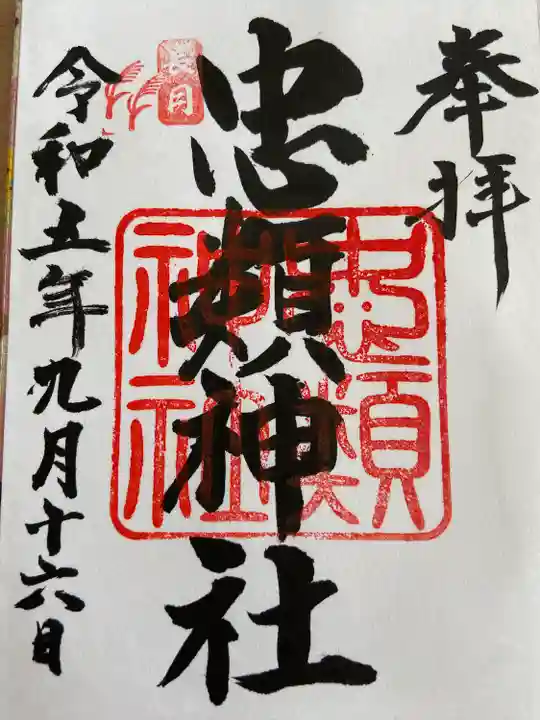 奉拝
忠類神社
忠類神社
長月
令和五年九月十六日